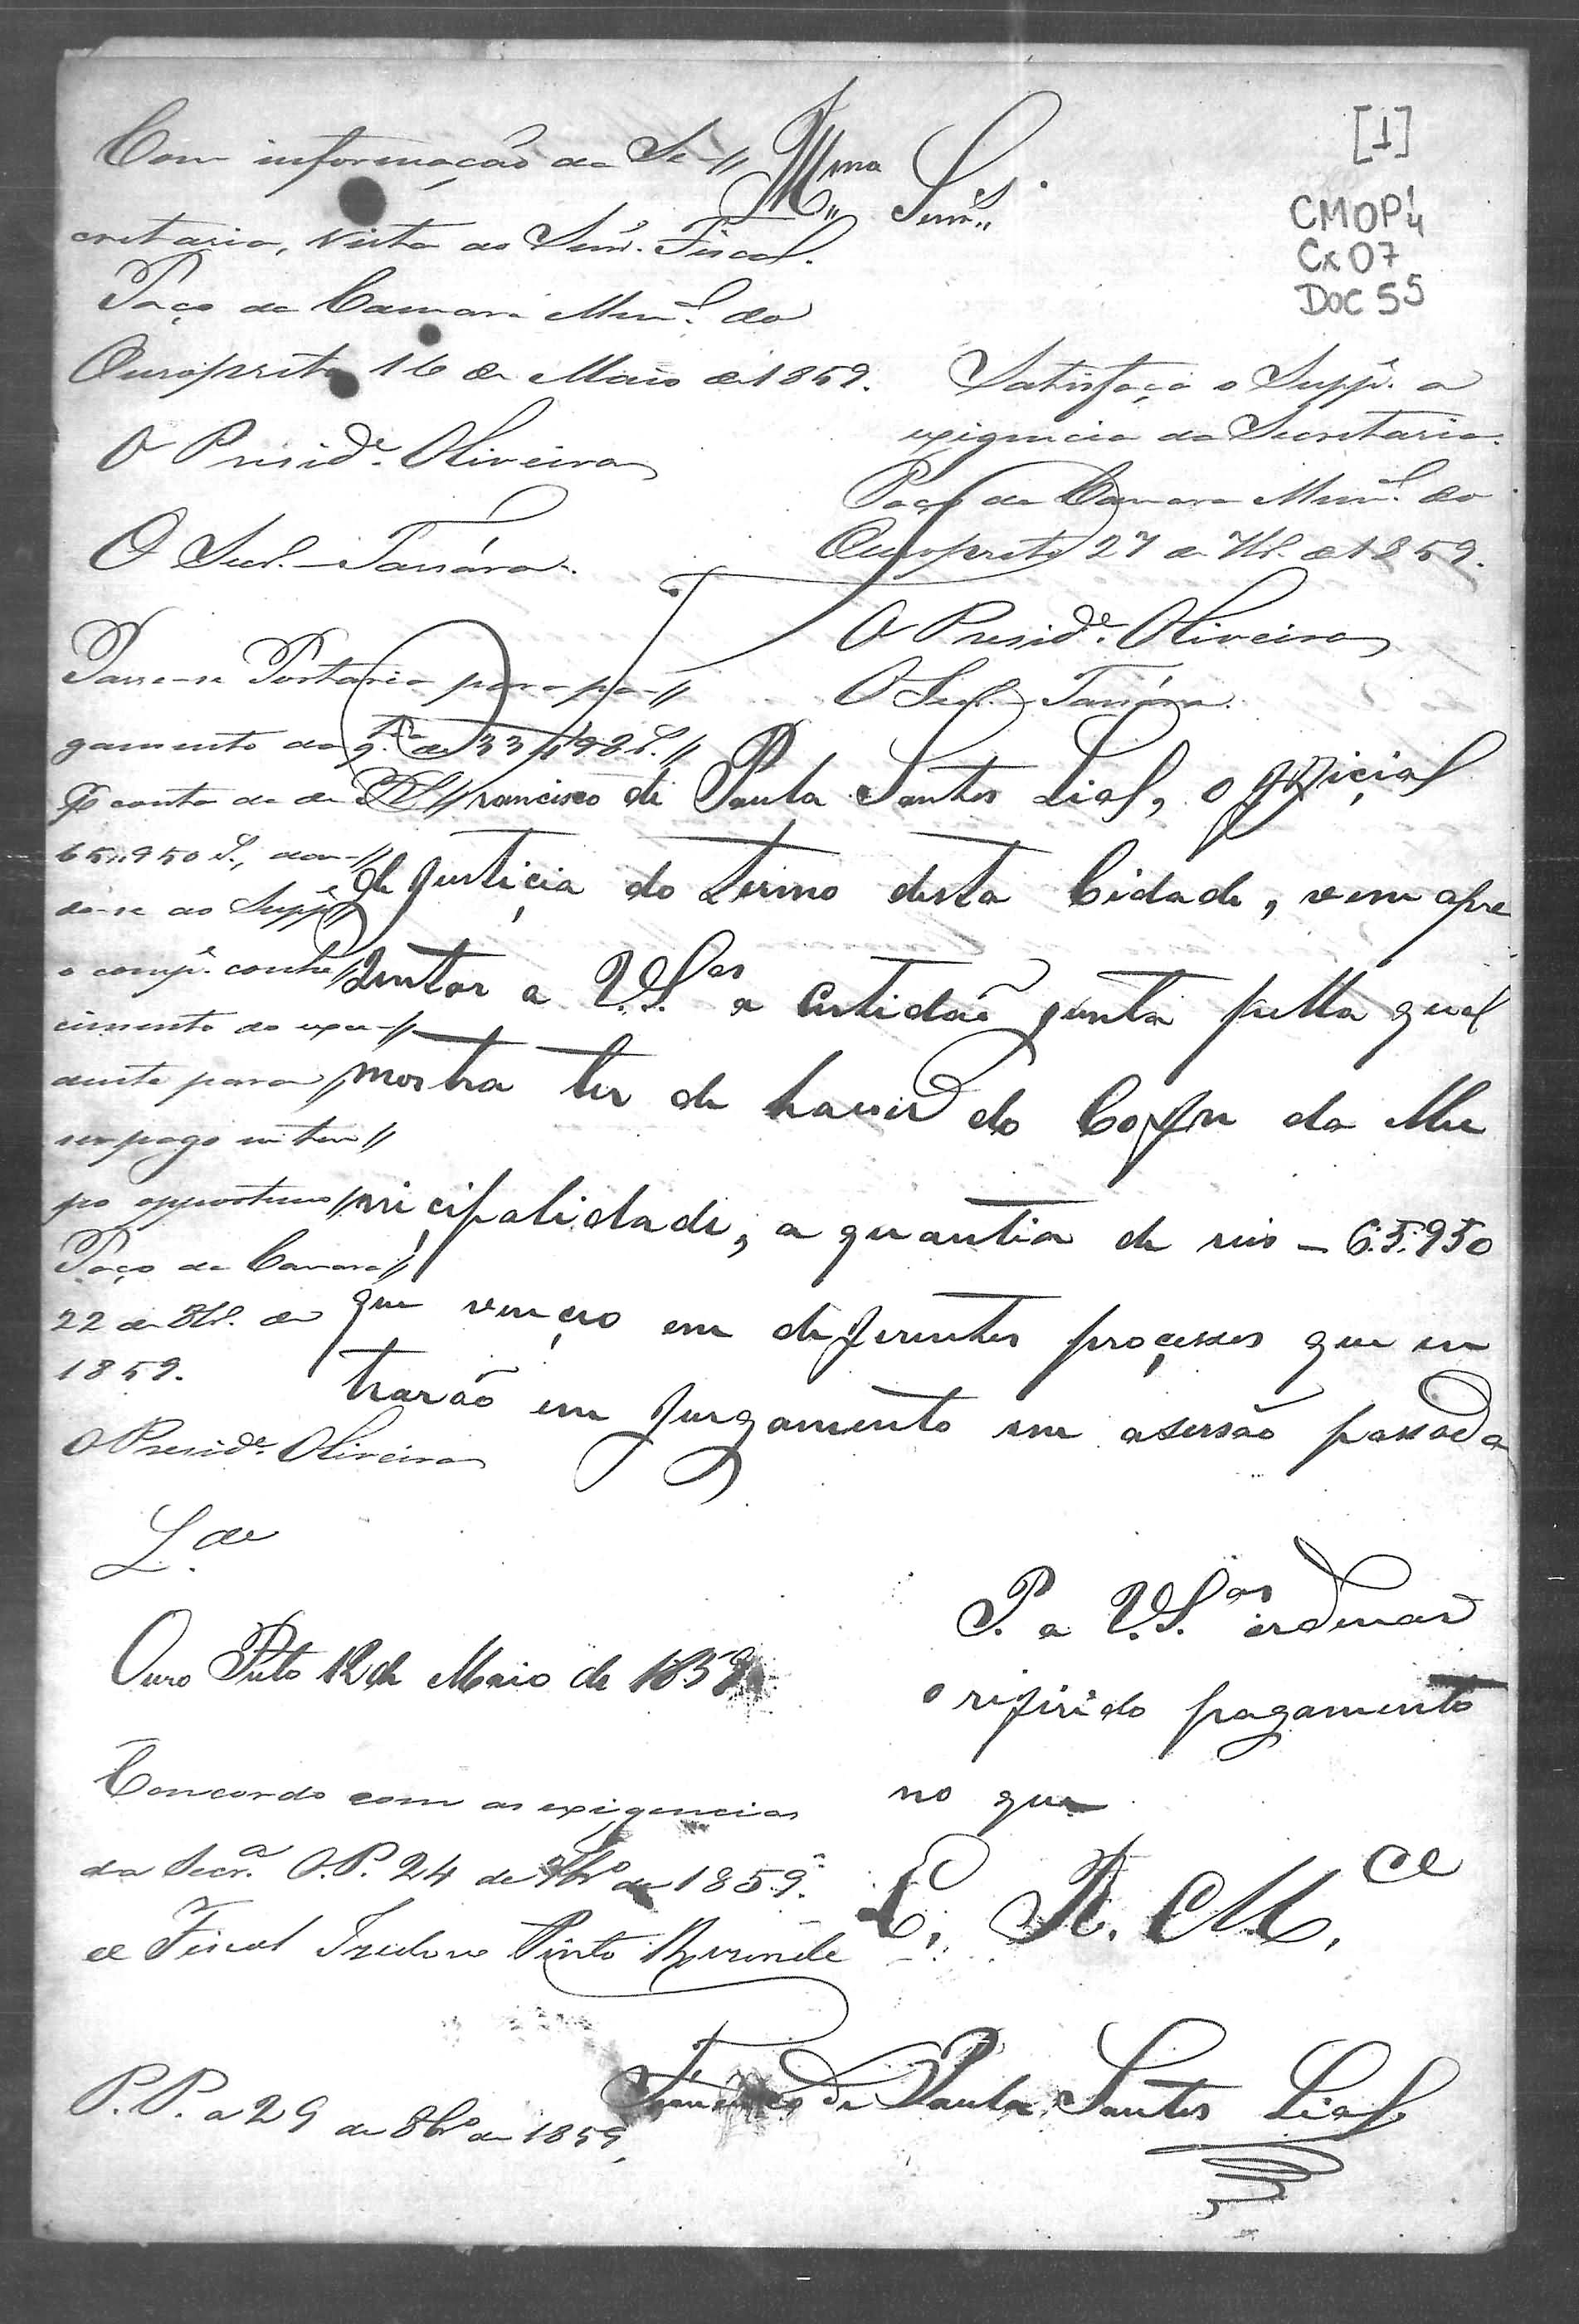 [1]
CMOP 4
Cx 07
DOC 55
Illma Senrs.
Com informação da Se-//
cretaria, vista ao Senr. Fiscal.
Paço da Camara Munl. do
Ouropreto 16 de Maio de 1859.
O Presid.e Oliveira
O Secr. Tassára.
Satisfaça o Supp.e a
exigencia da Secretaria.
Paço da Camara Munl. do
Ouropreto 27 de 7br. de 1859.
O Presid.e Oliveira
O Secr. Tassára.
Passe-se Portaria para pa-//
gamento da q.ta de 33//498 r.//
por conta da de
65//950 r., dan-//
do-se ao Supp.e//
o comp.e conhe//
cimento do exce-//
dente para
ser pago em tem//
po opportuno//
Paço da Camara//
22 de 8br. de
1859.
O Presid.e Oliveira
Francisco de Paula Santos Lial, official
de Justiçia do termo desta Cidade, vem apre
zentar a V.S.as a certidaõ junta pella qual
mostra ter de haver do Cofre da Mu
niçipalidade, a quantia de reis – 65.950
que vençeo em diferentes proçessos que en
trarão em Jurgamento em a sersão passada
L.de
P. a V.S.as ordenar
o rifirido pagamento
no que
Ouro Preto 12 de Maio de 1859
E. R. M.ce
Concordo com as exigencias
da Secr.a O.P. 24 de 7br.o de 1859.
O Fiscal Izidoro Pinto Rezende
Francisco de Paula Santos Lial
P.P. a 29 de 8br.o de 1859.